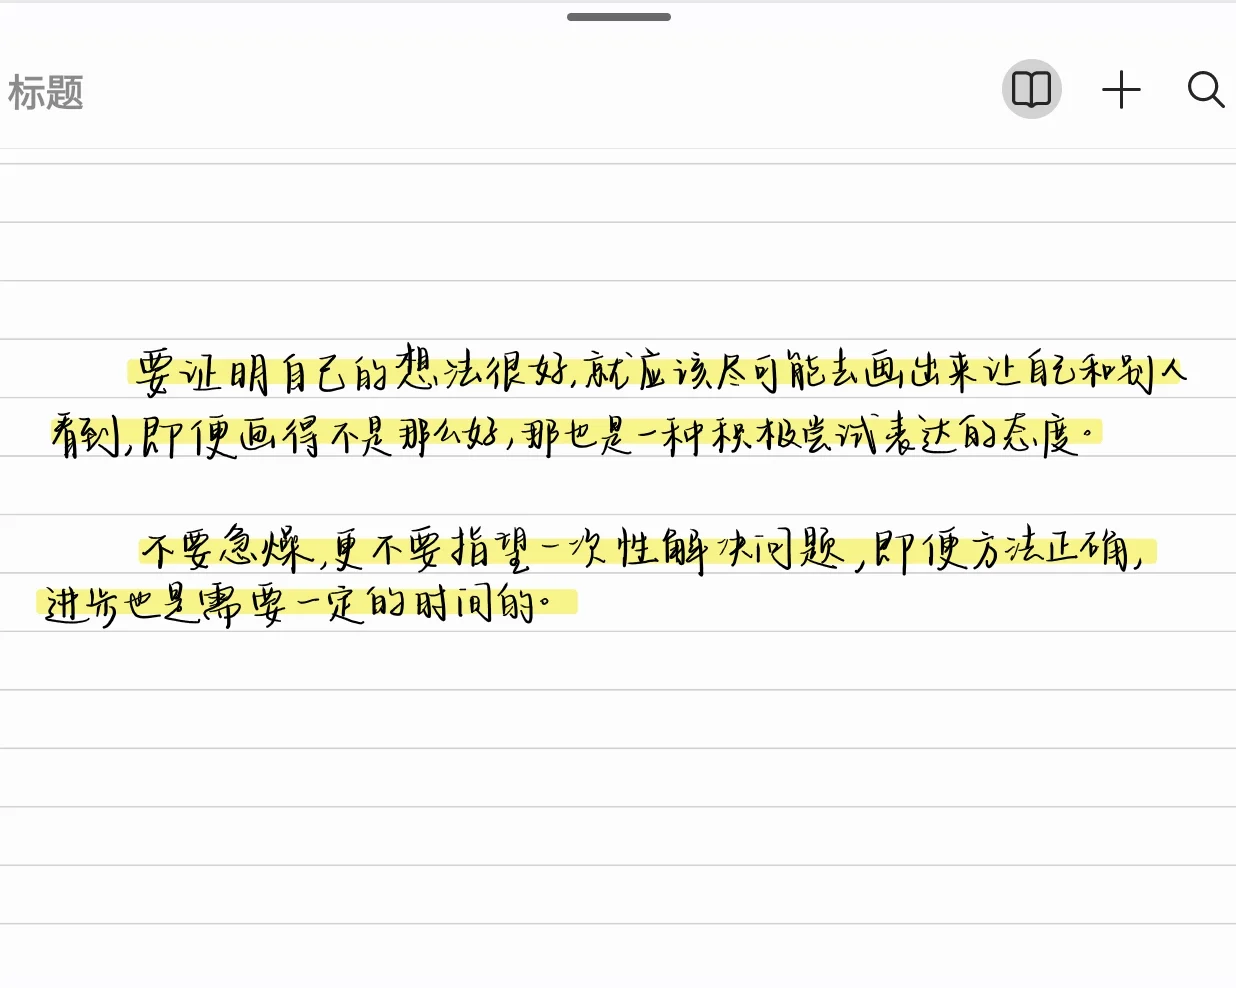 标题
要证明自己的想法很好,就应该尽可能去画出来让自己和别人
看到,即便画得不是那么好,那也是一种积极尝试表达的态度。
不要急燥,更不要指望一次性解决问题,即便方法正确,
进步也是需要一定的时间的。